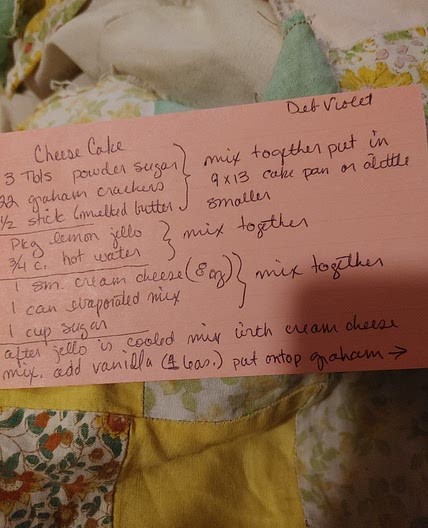 Deb Violet
Cheese Cake
3 Tbls powder sugar } mix together put in
22 graham crackers 9x13 cake pan or a little
1/2 stick (melted butter smaller
Pkg lemon jello } mix together
3/4 c. hot water
1 sm. cream cheese (8 oz) } mix together
1 can evaporated mix
1 cup sugar
after jello is cooled mix with cream cheese
mix, add vanilla (1 teas.) put ontop graham →